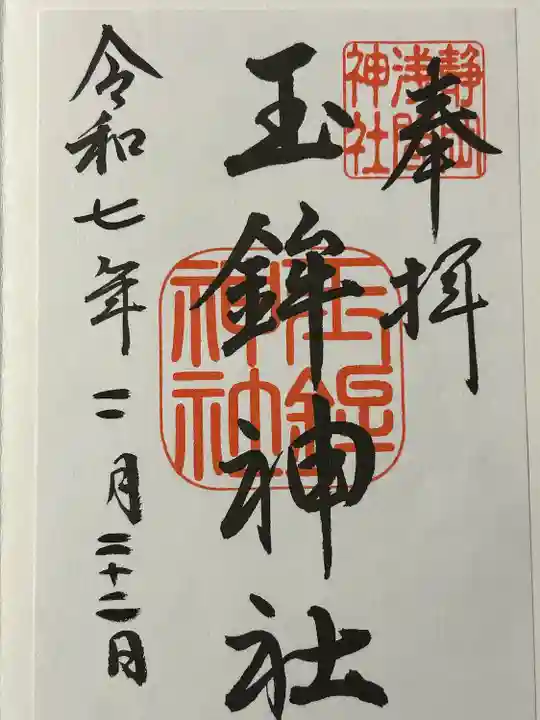 奉拝
静岡
浅間
神社
玉鉾神社
玉鉾
神社
令和七年二月二十二日